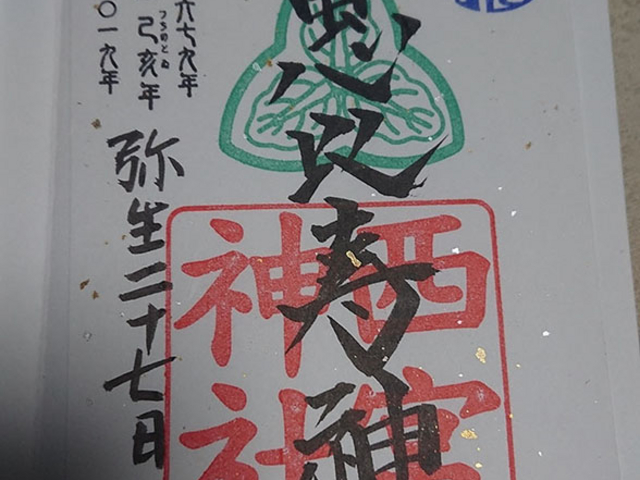 恵比寿神
西宮
神社
六七九年
つちのとゐ
己亥年
〇一九年
弥生二十七日